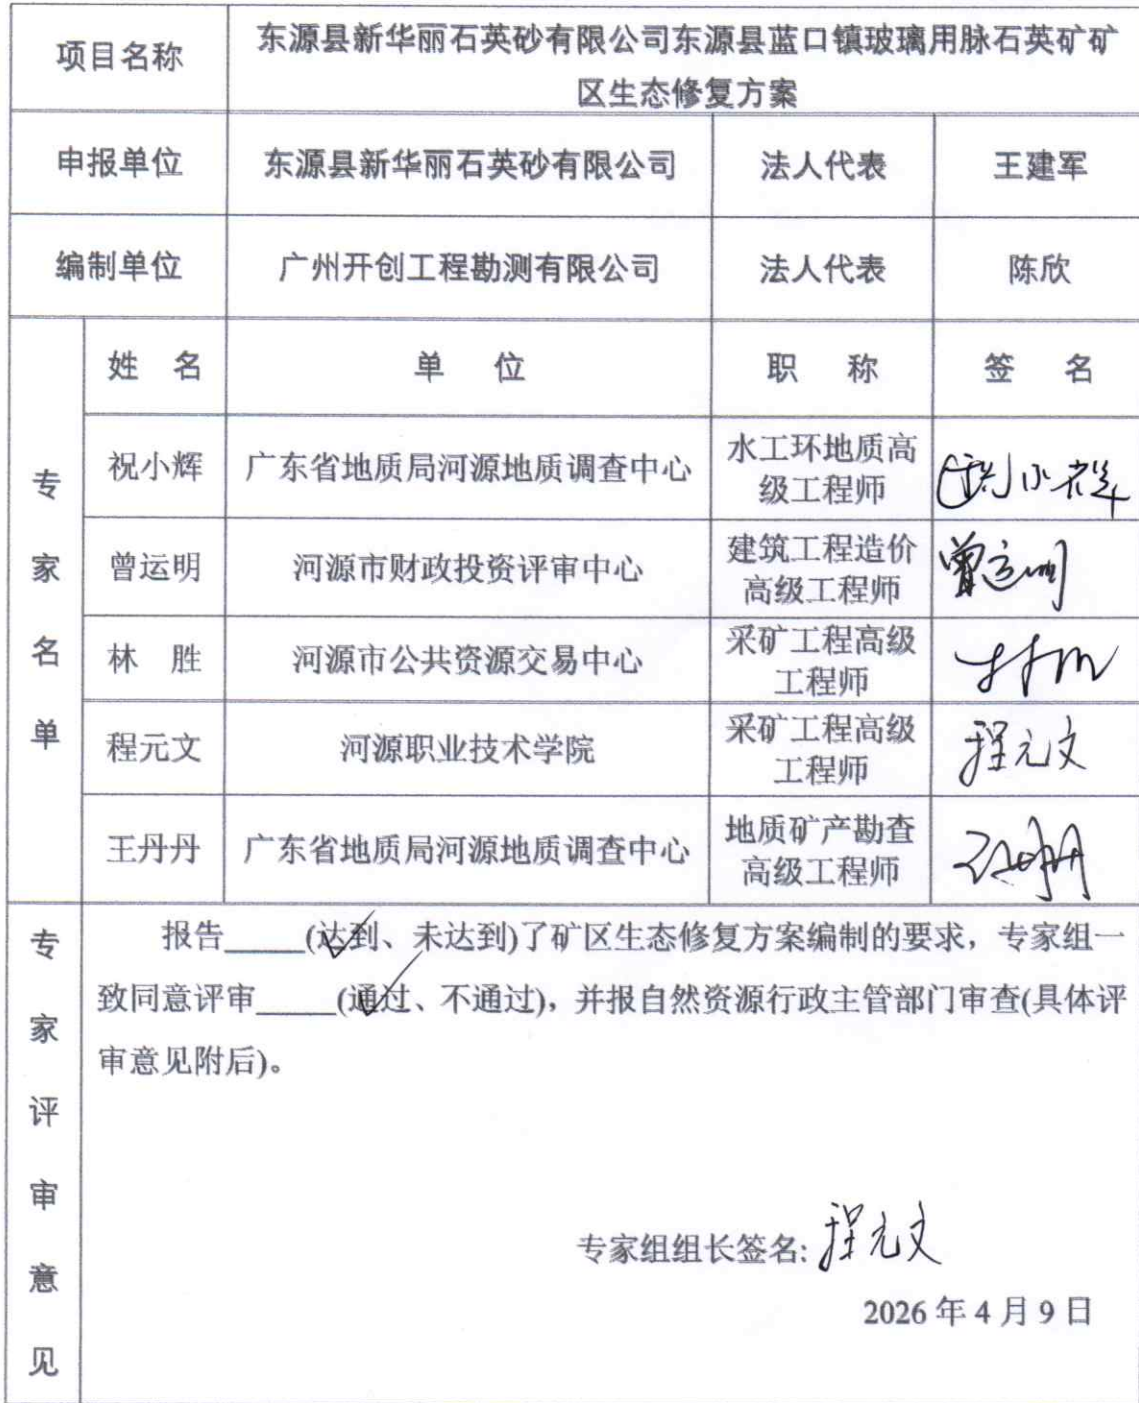 项目名称
东源县新华丽石英砂有限公司东源县蓝口镇玻璃用脉石英矿矿
区生态修复方案
申报单位 东源县新华丽石英砂有限公司 法人代表 王建军
编制单位 广州开创工程勘测有限公司 法人代表 陈欣
专家名单
姓 名 单 位 职 称 签 名
祝小辉 广东省地质局河源地质调查中心 水工环地质高
级工程师
祝小辉
曾运明 河源市财政投资评审中心 建筑工程造价
高级工程师
曾运明
林 胜 河源市公共资源交易中心 采矿工程高级
工程师
林胜
程元文 河源职业技术学院 采矿工程高级
工程师
程元文
王丹丹 广东省地质局河源地质调查中心 地质矿产勘查
高级工程师
王丹丹
专家评审意见
报告_____(达到、未达到)了矿区生态修复方案编制的要求，专家组一
致同意评审_____(通过、不通过)，并报自然资源行政主管部门审查(具体评
审意见附后)。
专家组组长签名: 程元文
2026 年 4 月 9 日